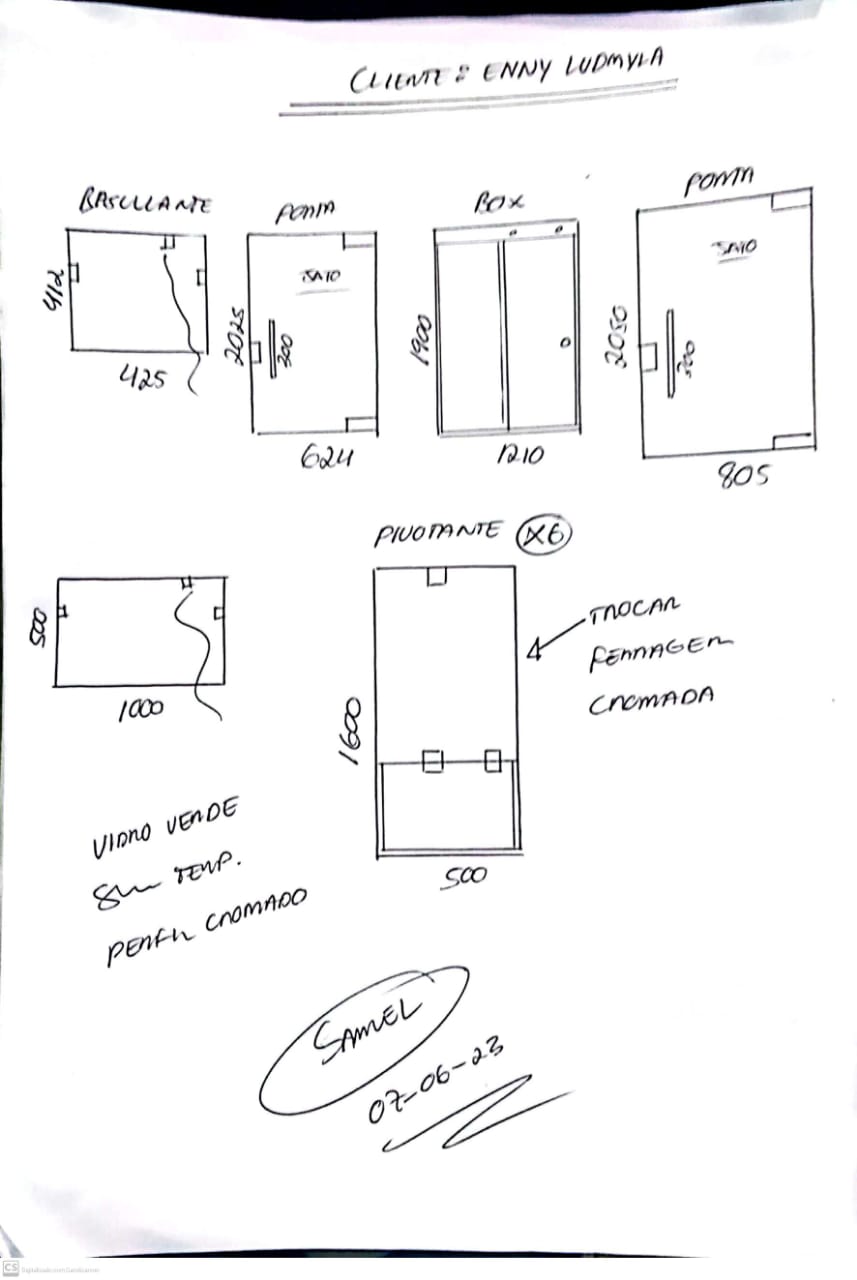 CLIENTE : ENNY LUDMYLA
BASCULANTE
PORTA
BOX
PORTA
412
425
2025
300
624
1900
1210
2050
300
805
500
1000
PIVOTANTE X6
1600
500
TROCAR
FERRAGEM
CROMADA
VIDRO VERDE
8mm TEMP.
PERFIL CROMADO
SAMUEL
07-06-23
CS Digitalizado com CamScanner